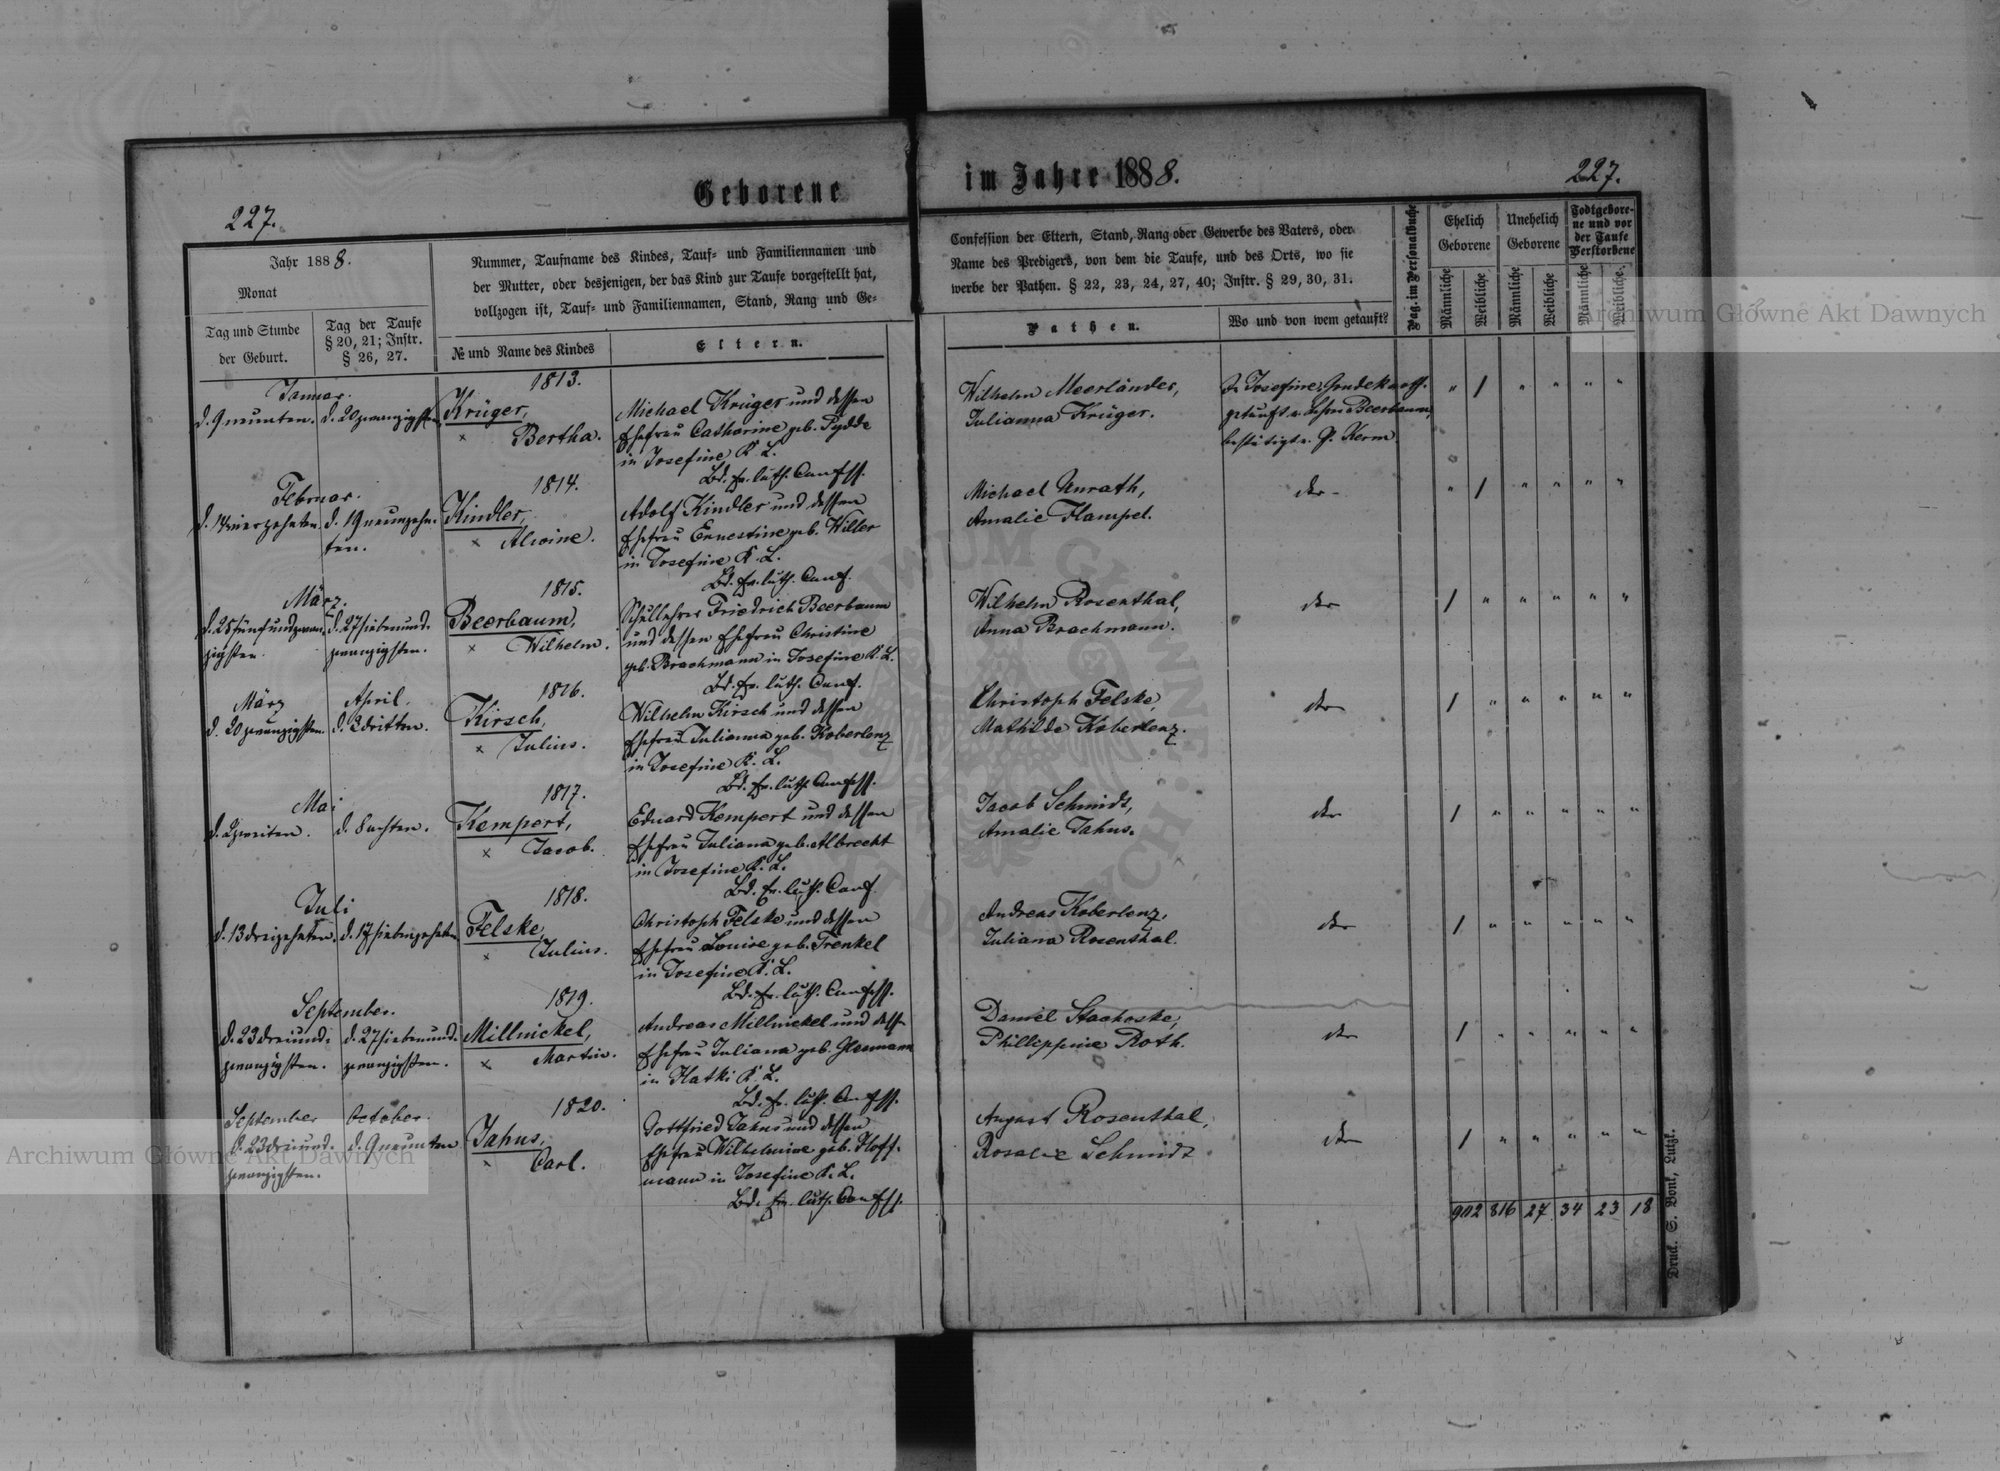 Geborene
im Jahre 1888.
227.
227.
Jahr 1888.
Monat
Tag und Stunde
der Geburt.
Tag der Taufe
§ 20, 21; Instr.
§ 26, 27.
Nummer, Taufname des Kindes, Tauf- und Familiennamen und
der Mutter, oder desjenigen, der das Kind zur Taufe vorgestellt hat,
vollzogen ist, Tauf- und Familiennamen, Stand, Rang und Ge-
№ und Name des Kindes
Eltern.
Confession der Eltern, Stand, Rang oder Gewerbe des Vaters, oder
Name des Predigers, von dem die Taufe, und des Orts, wo sie
werbe der Pathen. § 22, 23, 24, 27, 40; Instr. § 29, 30, 31.
Pathen.
Wo und von wem getauft?
Pag. im Personalbuche
Ehelich
Geborene
Unehelich
Geborene
Todtgebore-
ne und vor
der Taufe
Verstorbene
Männliche
Weibliche
Männliche
Weibliche
Männliche
Weibliche.
Januar.
d. 9 neunten.
d. 20 zwanzigsten
1813.
Krüger,
× Bertha.
Michael Krüger und dessen
Ehefrau Catharine geb. Pydde
in Josefine K. L.
Bd. ev. luth. Confess.
Wilhelm Meerländer,
Julianna Krüger.
In Josefine,
getauft v. Beerbaum,
bestätigt v. P. Kerm
" / " " " "
Februar.
d. 14 vierzehnten.
d. 19 neunzehn-
ten.
1814.
Kindler,
× Alwine.
Adolf Kindler und dessen
Ehefrau Ernestine geb. Willer
in Josefine K. L.
Bd. ev. luth. Conf.
Michael Unrath,
Amalie Hampel.
dto
" / " " " "
März.
d. 25 fünfundzwan-
zigsten.
d. 27 siebenund-
zwanzigsten.
1815.
Beerbaum,
× Wilhelm.
Schullehrer Friedrich Beerbaum
und dessen Ehefrau Christine
geb. Brachmann in Josefine K. L.
Bd. ev. luth. Conf.
Wilhelm Rosenthal,
Anna Brachmann.
dto
/ " " " " "
März
d. 20 zwanzigsten.
April.
dritten.
1816.
Kirsch,
× Julius.
Wilhelm Kirsch und dessen
Ehefrau Julianna geb. Koberlenz
in Josefine K. L.
Bd. ev. luth. Confess.
Christoph Felske,
Mathilde Koberlenz.
dto
/ " " " " "
Mai
d. 2 zweiten.
d. 8 achten.
1817.
Kempert,
× Jacob.
Eduard Kempert und dessen
Ehefrau Juliana geb. Albrecht
in Josefine K. L.
Bd. ev. luth. Conf.
Jacob Schmidt,
Amalie Jahns.
dto
/ " " " " "
Juli
d. 13 dreizehnten.
d. 17 siebenzehnten
1818.
Felske,
× Julius.
Christoph Felske und dessen
Ehefrau Louise geb. Frenkel
in Josefine K. L.
Bd. ev. luth. Confess.
Andreas Koberlenz,
Juliana Rosenthal.
dto
/ " " " " "
September.
d. 23 dreiund-
zwanzigsten.
d. 27 siebenund-
zwanzigsten.
1819.
Millnickel,
× Martin.
Andreas Millnickel und dess.
Ehefrau Juliana geb.
in Hatki K. L.
Bd. ev. luth. Confess.
Daniel Stachoske,
Phillippine Roth.
dto
/ " " " " "
September
d. 23 dreiund-
zwanzigsten.
October.
d. 9 neunten
1820.
Jahns,
× Carl.
Gottfried Jahns und dessen
Ehefrau Wilhelmine geb. Hoff-
mann in Josefine K. L.
Bd. ev. luth. Confess.
August Rosenthal,
Rosalie Schmidt
dto
/ " " " " "
902 816 27 34 23 18
Druck. S. Bonk, Lutzk.
Archiwum Główne Akt Dawnych
Archiwum Główne Akt Dawnych